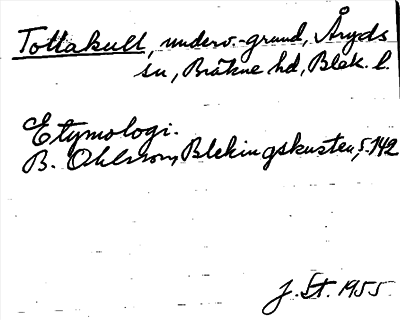 Tottakull, underv.-grund, Åryds
sn, Bräkne hd, Blek. l.
Etymologi.
B. Ohlsson, Blekingskusten, s. 142
J. St. 1955